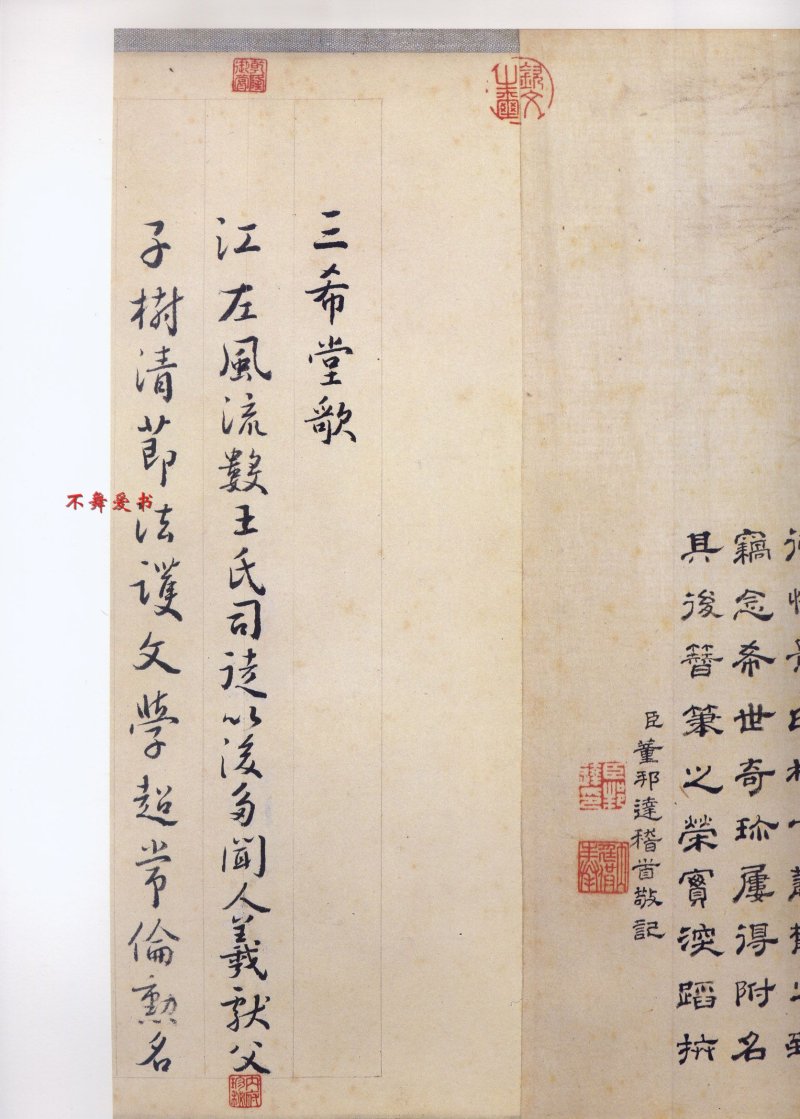 竊念希世奇珎屢得附名
其後簪筆之榮實深蹈抃
臣董邦達稽首敬記
三希堂歌
江左風流數王氏司徒以後多聞人羲獻父
子樹清節法護文學超常倫勲名
乾隆御賞
內府珍秘
不舞爱书